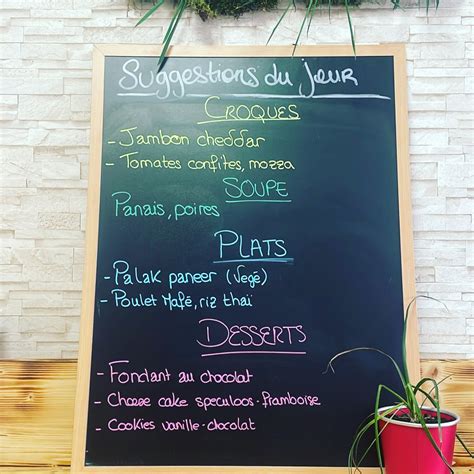 Suggestions du jour
CROQUES
- Jambon cheddar
- Tomates confites, mozza
SOUPE
Panais, poires
PLATS
- Palak paneer (Vegé)
- Poulet Mafé, riz thaï
DESSERTS
- Fondant au chocolat
- Cheese cake speculoos.framboise
- Cookies vanille.chocolat